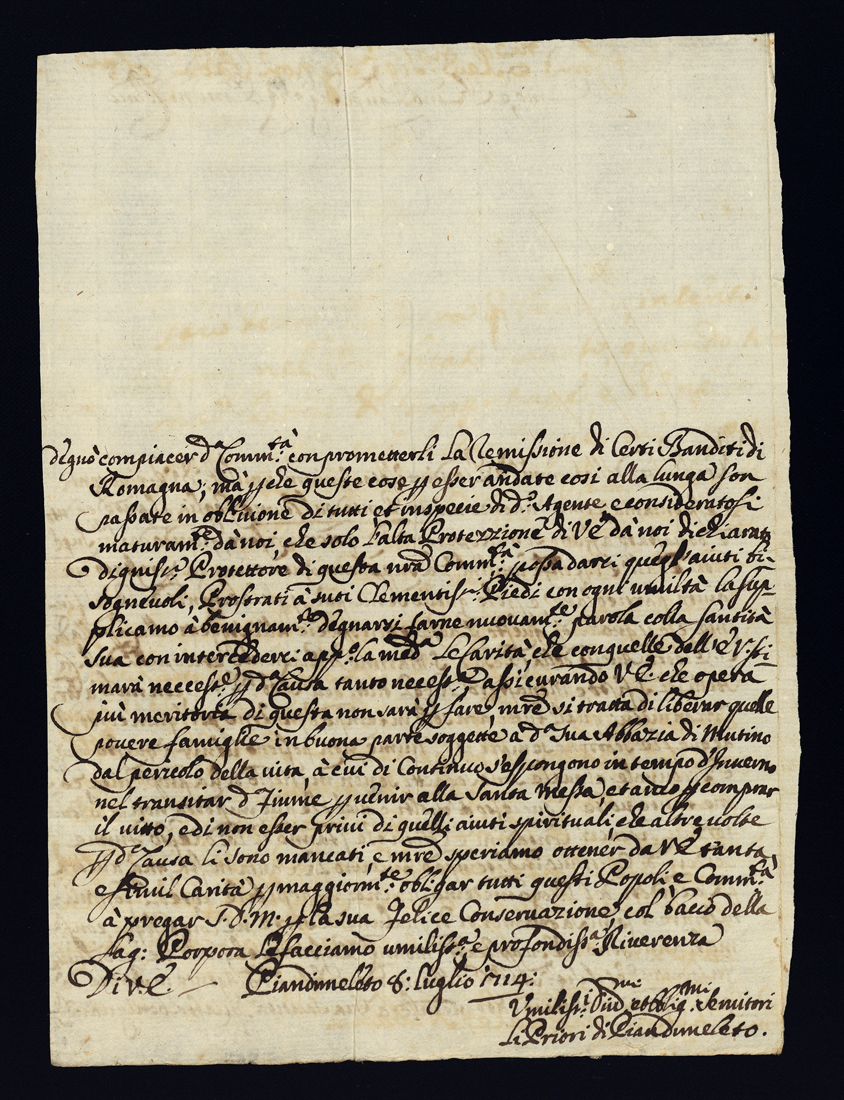 degnò compiacer d.ª Comm.tà con prometterli La Remissione di Certi Banditi di
Romagna; mà pche queste cose p esser andate cosi alla lunga son
passate in oblivione di tutti et in specie di d.º Agente e consideratosi
maturam.te dà noi che solo l'alta Protezzione di V.E. dà noi dichiarata
Digniss.º Protettore di questa nrã Comm.tà possa darci quegl'aiuti bi-
sognevoli, Prostrati à suoi Clementiss.i Piedi con ogni umiltà la sup-
plicamo à benignam.te degnarsi farne nuovam.te parola colla Santità
sua con intercederci app.º la med.ª Le Carità, che con quelle dell'E.V. sti-
marà necess.e p d.ª Causa tanto necess.ª assicurando V.E. che opera
più meritoria di questa non sarà p fare, mrẽ si tratta di liberar quelle
povere famiglie in buona parte soggette à d.ª Sua Abbazia di Mutino
dal pericolo della vita, à cui di Continuo s'espongono in tempo d'Inverno
nel transitar d.º Fiume p venir alla Santa Messa, et anco p comprar
il vitto, e di non esser privi di quelli aiuti spirituali, che altre volte
p d.ª Causa li sono mancati, e mrẽ speriamo ottener da V.E. tanta
e simil Carità p maggiorm.te obligar tutti questi Popoli e Comm.tà
à pregar S.D.M. p la sua Felice Conservazione, col bacio della
Sag: Porpora Le facciamo umiliss.ª e profondiss.ª Riverenza
Di V.E. Piandimeleto 8: Luglio 1714:
Umiliss.i Div.mi et Oblig.mi Servitori
Li Priori di Piandimeleto.